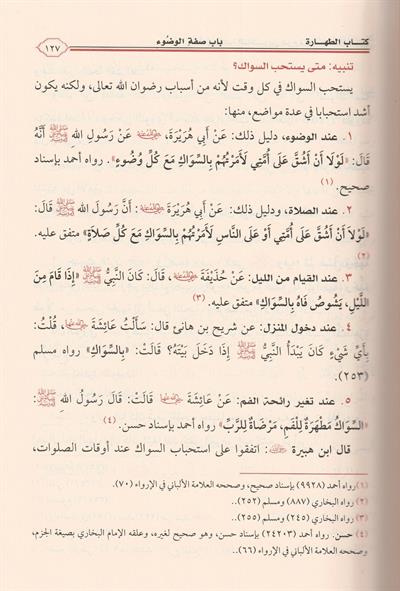 كتاب الطهارة
باب صفة الوضوء
١٢٧
تنبيه: متى يستحب السواك؟
يستحب السواك في كل وقت لأنه من أسباب رضوان الله تعالى، ولكنه يكون
أشد استحبابا في عدة مواضع، منها:
١. عند الوضوء، دليل ذلك: عَنْ أَبِي هُرَيْرَةَ، رضي الله عنه عَنْ رَسُولِ اللهِ ﷺ أَنَّهُ
قَالَ: «لَوْلَا أَنْ أَشُقَّ عَلَى أُمَّتِي لَأَمَرْتُهُمْ بِالسِّوَاكِ مَعَ كُلِّ وُضُوءٍ». رواه أحمد بإسناد
صحيح. (١)
٢. عند الصلاة، ودليل ذلك: عَنْ أَبِي هُرَيْرَةَ رضي الله عنه: أَنَّ رَسُولَ اللهِ ﷺ قَالَ:
«لَوْلَا أَنْ أَشُقَّ عَلَى أُمَّتِي أَوْ عَلَى النَّاسِ لَأَمَرْتُهُمْ بِالسِّوَاكِ مَعَ كُلِّ صَلَاةٍ» متفق عليه.
(٢)
٣. عند القيام من الليل: عَنْ حُذَيْفَةَ رضي الله عنه، قَالَ: كَانَ النَّبِيُّ ﷺ «إِذَا قَامَ مِنَ
اللَّيْلِ، يَشُوصُ فَاهُ بِالسِّوَاكِ» متفق عليه. (٣)
٤. عند دخول المنزل: عن شريح بن هانئ قال: سَأَلْتُ عَائِشَةَ رضي الله عنها، قُلْتُ:
بِأَيِّ شَيْءٍ كَانَ يَبْدَأُ النَّبِيُّ ﷺ إِذَا دَخَلَ بَيْتَهُ؟ قَالَتْ: «بِالسِّوَاكِ» رواه مسلم
(٢٥٣).
٥. عند تغير رائحة الفم: عَنْ عَائِشَةَ رضي الله عنها قَالَتْ: قَالَ رَسُولُ اللهِ ﷺ:
«السِّوَاكُ مَطْهَرَةٌ لِلْفَمِ، مَرْضَاةٌ لِلرَّبِّ» رواه أحمد بإسناد حسن. (٤)
قال ابن هبيرة رحمه الله: اتفقوا على استحباب السواك عند أوقات الصلوات،
(١) رواه أحمد (٩٩٢٨) بإسناد صحيح، وصححه العلامة الألباني في الإرواء (٧٠).
(٢) رواه البخاري (٨٨٧) ومسلم (٢٥٢)..
(٣) رواه البخاري (٢٤٥) ومسلم (٢٥٥)..
(٤) حسن. رواه أحمد (٢٤٢٠٣) بإسناد حسن، وهو صحيح لغيره، وعلقه الإمام البخاري بصيغة الجزم،
وصححه العلامة الألباني في الإرواء (٦٦)..